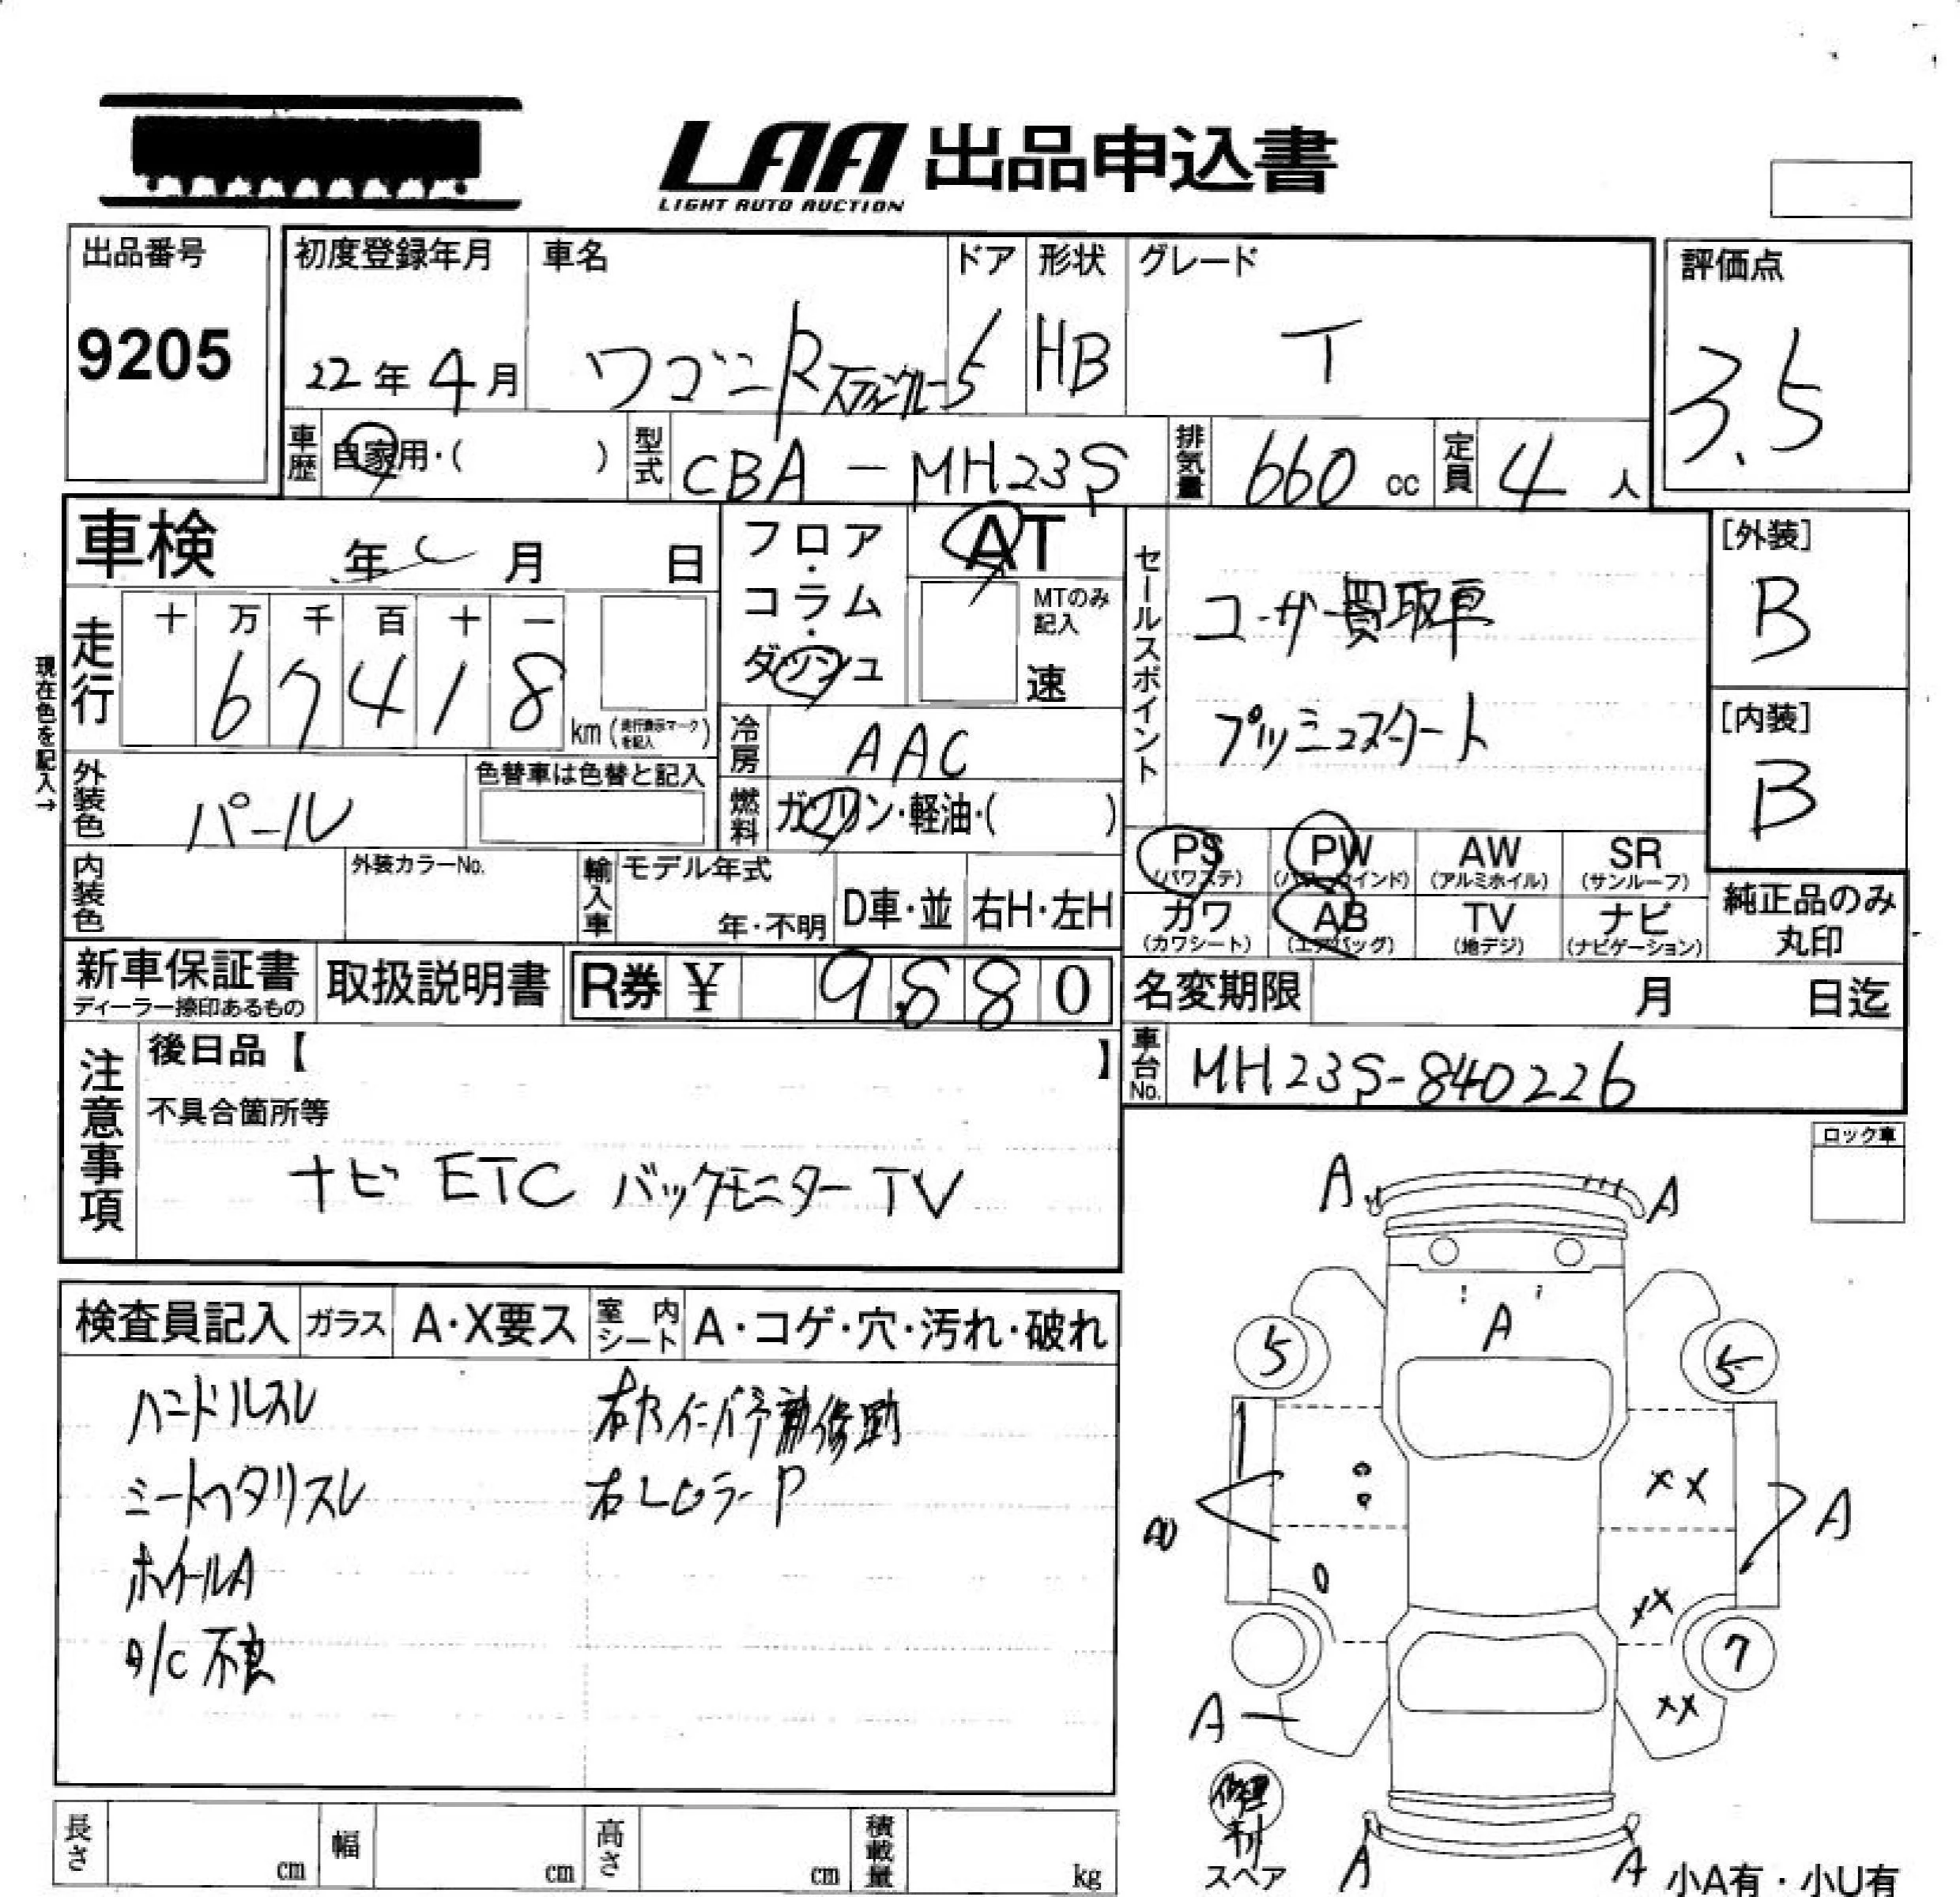 LAA 出品申込書
LIGHT AUTO AUCTION
出品番号
9205
初度登録年月
22年4月
車名
ワゴンR スティングレー
ドア
5
形状
HB
グレード
T
評価点
3.5
車歴 自家用・( )
型式 CBA-MH23S
排気量 660 cc
定員 4人
車検 年 月 日
現在色を記入→
走行
十 万 千 百 十 一
6 7 4 1 8
km(走行表示マークを記入)
外装色 パール
色替車は色替と記入
内装色
外装カラーNo.
フロア・コラム・ダッシュ
AT
MTのみ記入
速
冷房 AAC
燃料 ガソリン・軽油・( )
輸入車
モデル年式
年・不明
D車・並
右H・左H
セールスポイント
ユーザー買取車
プッシュスタート
[外装]
B
[内装]
B
PS AW SR
(パワステ) (アルミホイル) (サンルーフ)
PW
カワ AB TV ナビ
(カワシート) (エアバッグ) (地デジ) (ナビゲーション)
純正品のみ
丸印
新車保証書
ディーラー捺印あるもの
取扱説明書
R券 ¥ 9,880
名変期限 月 日迄
車台No. MH23S-840226
注意事項
後日品【 】
不具合箇所等
ナビ ETC バックモニター TV
ロック車
検査員記入 ガラス A・X要ス 室内シート A・コゲ・穴・汚れ・破れ
ハンドルスレ
シートヘタリスレ
ホイールA
A/C 不良
A A
A
5 5
XX
A
XX
7
XX
A
A A
スペア
小A有・小U有
長さ cm
幅 cm
高さ cm
積載量 kg